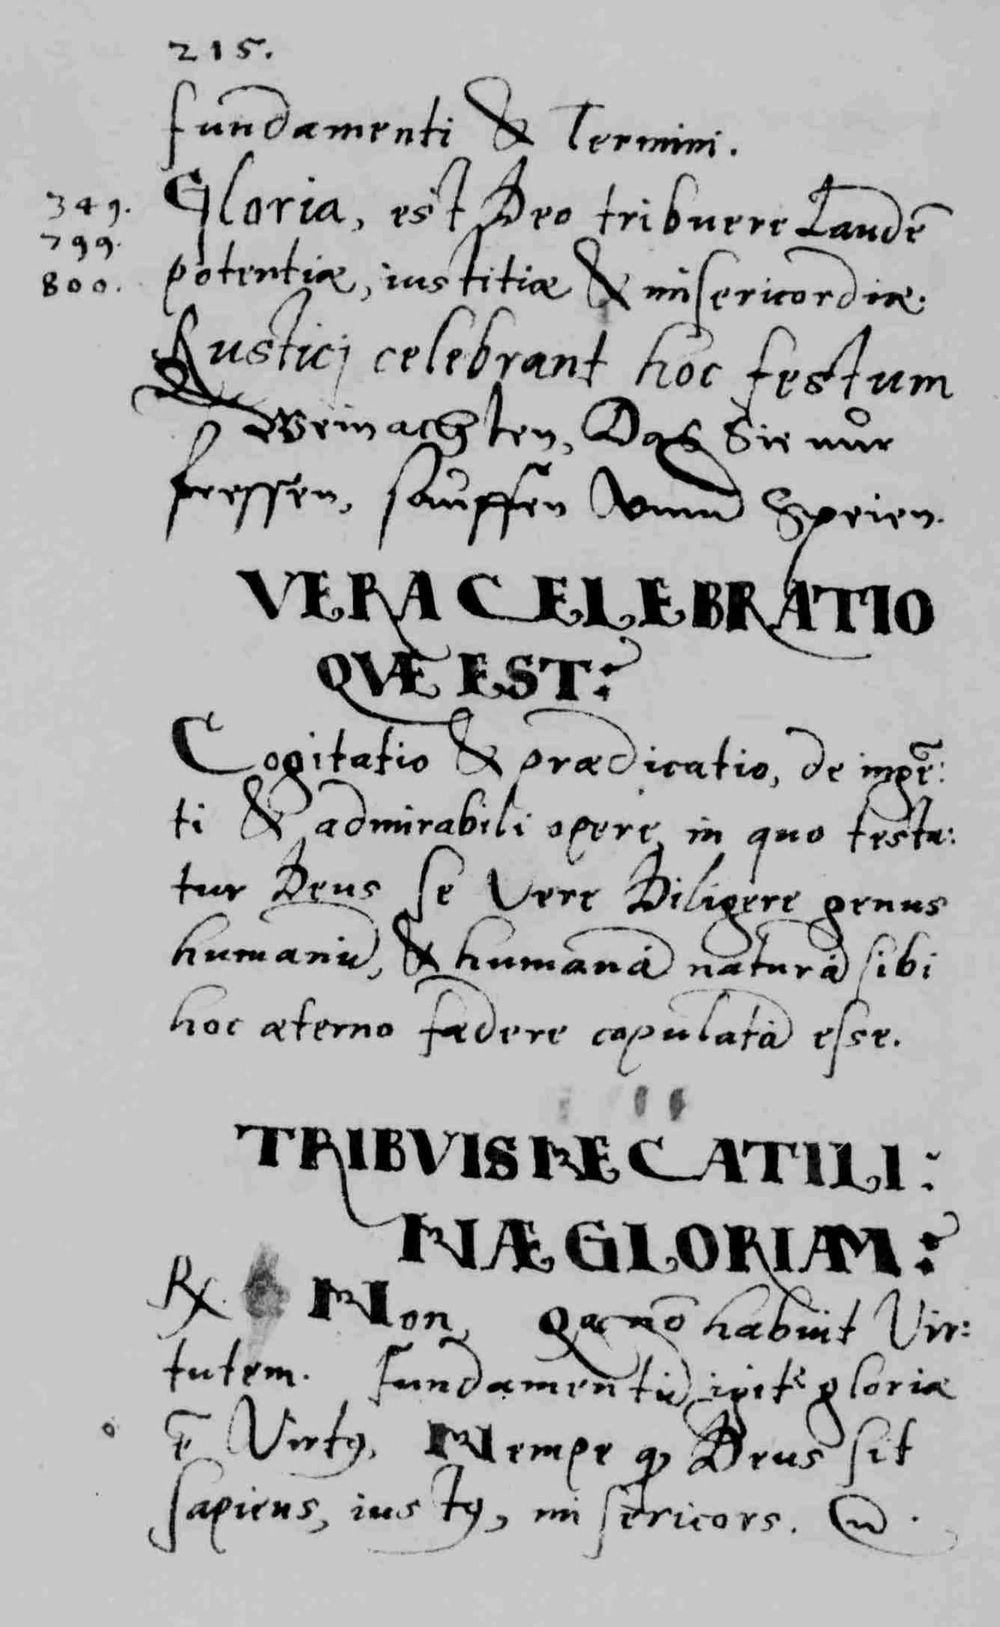 215.
fundamenti & Termini.
349. Gloria, est Deo tribuere Laudē
799.
800. potentiæ, iustitiæ & misericordiæ.
Rustici celebrant hoc festum
Weinachten, Das Sie nůr
fressen, sauffen vnnd Speien.
VERA CELEBRATIO
QVÆ EST?
Cogitatio & prædicatio, de ingē:
ti & admirabili opere, in quo testa:
tur Deus se Vere Diligere genus
humanū, & humanā naturā sibi
hoc æterno fædere copulatā esse.
TRIBVISNE CATILI:
NÆ GLORIAM?
Rx. Non, Qa nō habuit Vir:
tutem. Fundamentū igitr gloriæ
ē Virtꝰ, Nempe ꝙ Deus sit
sapiens, iustꝰ, misericors.